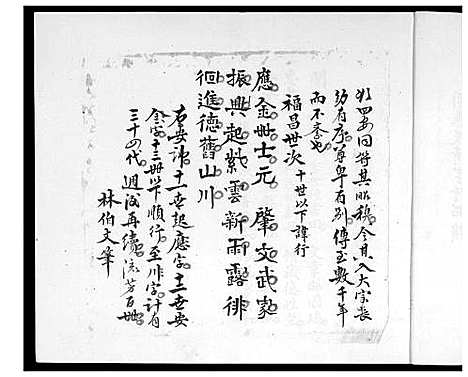 四安同符其昭穆令其入大宗喪
幼有序尊卑有別傳至數千年
而不紊也
福昌世次 十世以下諱行
應金冊士元 肇文武家
振興起紫雲新雨露徘
徊進德舊山川
右安諱十一世起應字十二世安
金字十三冊以下順行至川字計有
三十四代週後再續流芳百世
林伯文筆